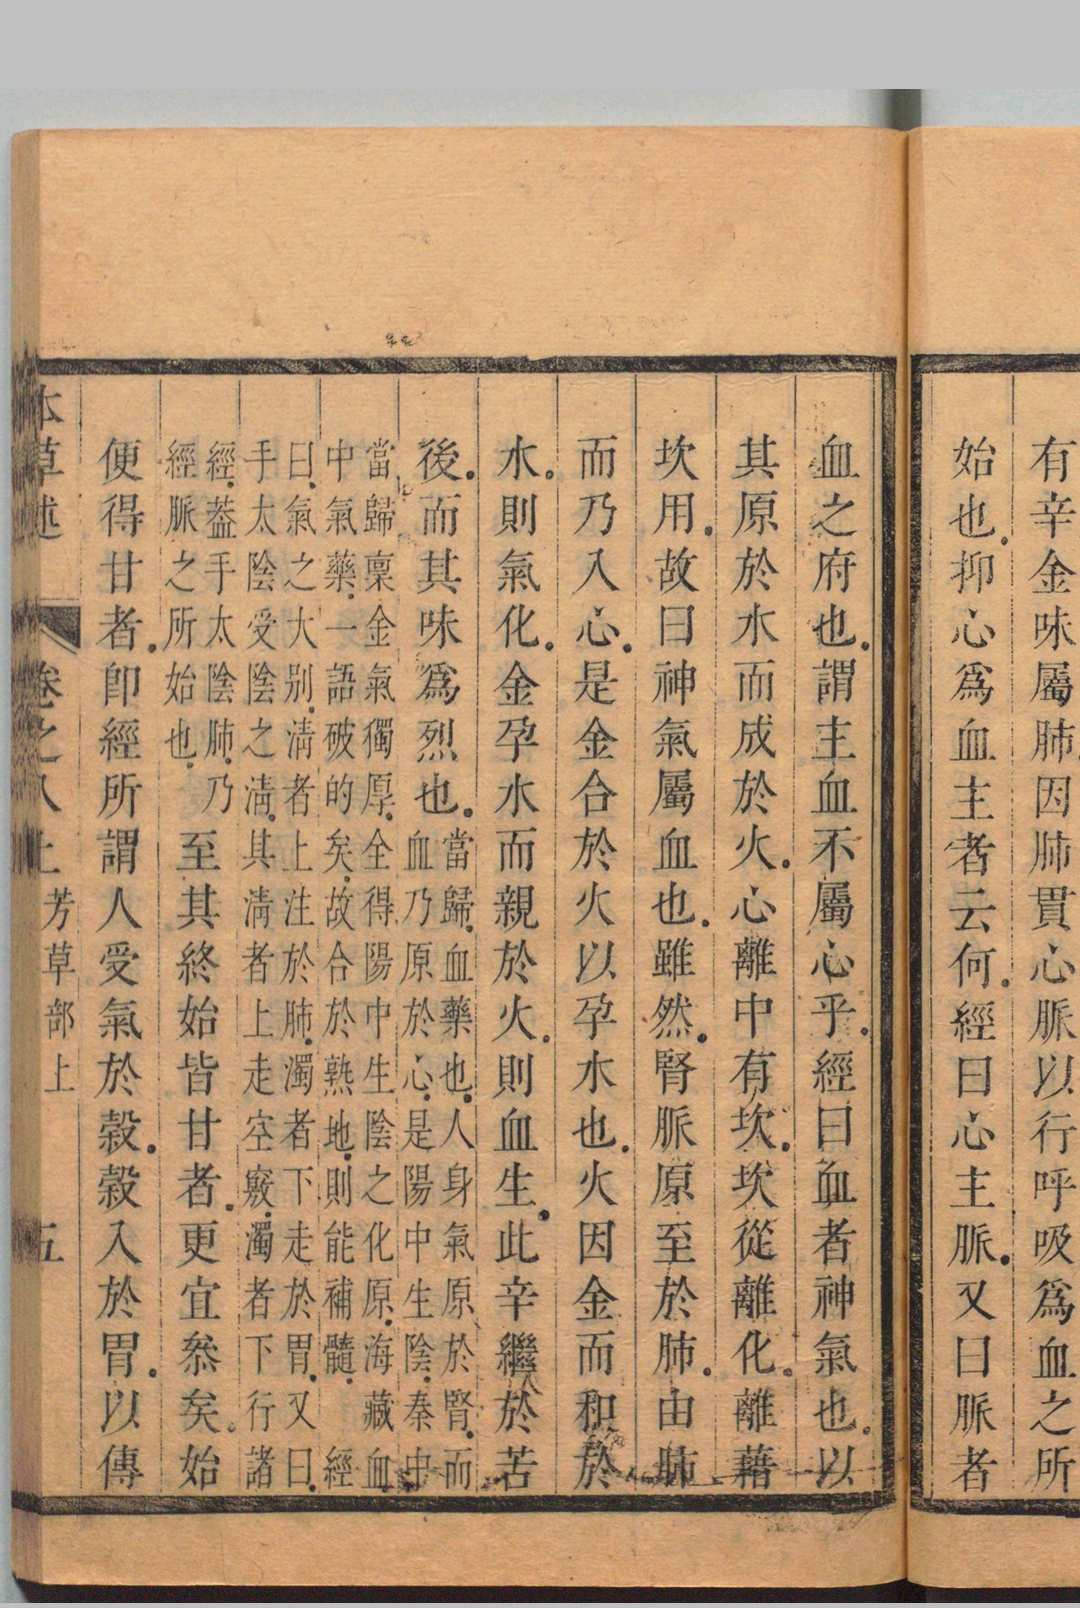 有辛金味屬肺因肺貫心脈以行呼吸爲血之所
始也抑心爲血主者云何經曰心主脈又曰脈者
血之府也謂主血不屬心乎經曰血者神氣也以
其原於水而成於火心離中有坎坎從離化離藉
坎用故曰神氣屬血也雖然腎脈原至於肺由肺
而乃入心是金合於火以孕水也火因金而和於
水則氣化金孕水而親於火則血生此辛繼於苦
後而其味爲烈也當歸血藥也人身氣原於腎而
血乃原於心是陽中生陰秦中
當歸稟金氣獨厚全得陽中生陰之化原海藏血
中氣藥一語破的矣故合於熟地則能補髓 經
曰氣之大別清者上注於肺濁者下走於胃又曰
手太陰受陰之清其清者上走空竅濁者下行諸
經蓋手太陰肺乃
經脈之所始也
至其終始皆甘者更宜叅矣始
便得甘者卽經所謂人受氣於穀穀入於胃以傳
本草述 卷之八上 芳草部上 五